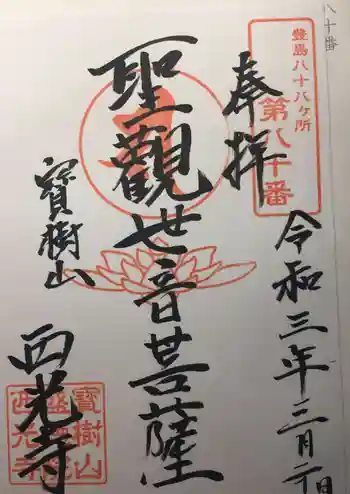 八十番
豊島八十八ケ所
第八十番
奉拝
令和三年三月二日
聖觀世音菩薩
寶樹山
西光寺
寶樹山
西光寺